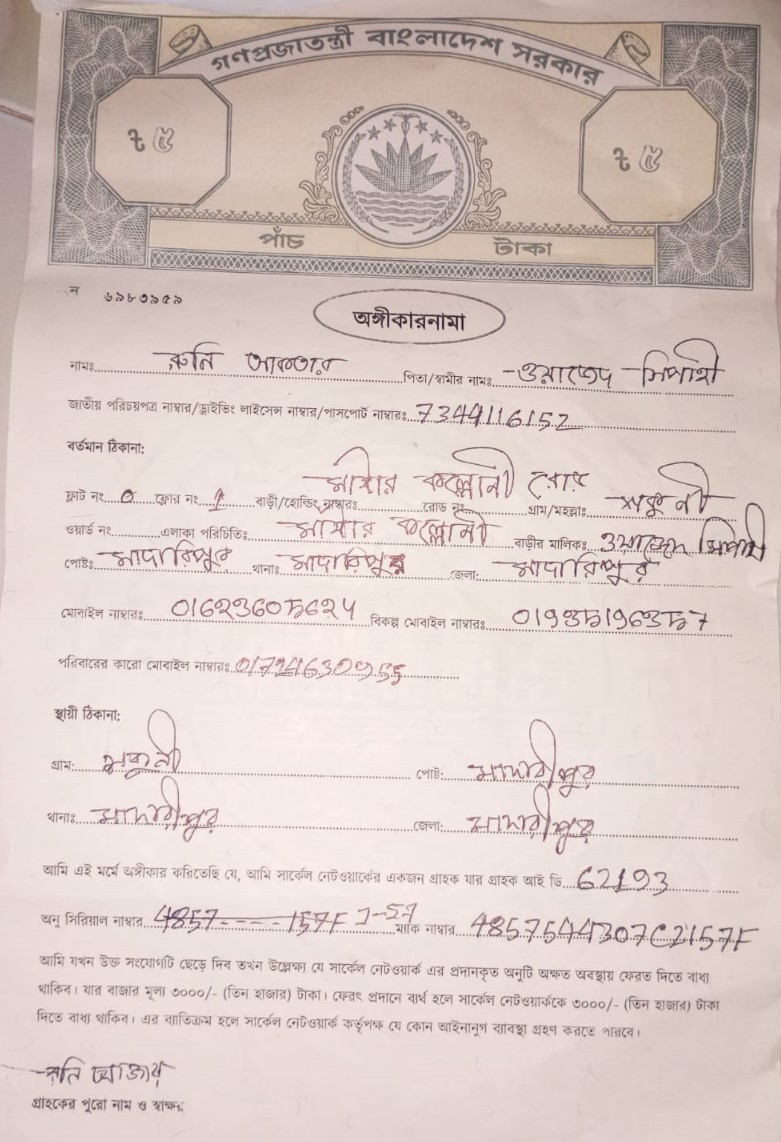 গণপ্রজাতন্ত্রী বাংলাদেশ সরকার
৳ ৫ ৳ ৫
পাঁচ টাকা
ন ৬৯৮৩৯৫৯
অঙ্গীকারনামা
নামঃ রুনি আকতার পিতা/স্বামীর নামঃ ওয়াজেদ সিপাহী
জাতীয় পরিচয়পত্র নাম্বার/ড্রাইভিং লাইসেন্স নাম্বার/পাসপোর্ট নাম্বারঃ 7344116152
বর্তমান ঠিকানা:
ফ্লাট নং ফ্লোর নং বাড়ী/হোল্ডিং নাম্বারঃ রোড নং গ্রাম/মহল্লাঃ
ওয়ার্ড নং এলাকা পরিচিতিঃ বাড়ীর মালিকঃ ওয়াজেদ সিপাহী
পোষ্টঃ মাদারিপুর থানাঃ মাদারিপুর জেলা: মাদারিপুর
মোবাইল নাম্বারঃ বিকল্প মোবাইল নাম্বারঃ
পরিবারের কারো মোবাইল নাম্বারঃ
স্থায়ী ঠিকানা:
গ্রাম: পোষ্ট: মাদারীপুর
থানাঃ মাদারীপুর জেলা: মাদারীপুর
আমি এই মর্মে অঙ্গীকার করিতেছি যে, আমি সার্কেল নেটওয়ার্কের একজন গ্রাহক যার গ্রাহক আই ডি 62193
অনু সিরিয়াল নাম্বার 4857-----157F ম্যাক নাম্বার 4857544307C2157F
আমি যখন উক্ত সংযোগটি ছেড়ে দিব তখন উল্লেক্ষ্য যে সার্কেল নেটওয়ার্ক এর প্রদানকৃত অনুটি অক্ষত অবস্থায় ফেরত দিতে বাধ্য
থাকিব। যার বাজার মূল্য ৩০০০/- (তিন হাজার) টাকা। ফেরৎ প্রদানে ব্যর্থ হলে সার্কেল নেটওয়ার্ককে ৩০০০/- (তিন হাজার) টাকা
দিতে বাধ্য থাকিব। এর ব্যতিক্রম হলে সার্কেল নেটওয়ার্ক কর্তৃপক্ষ যে কোন আইনানুগ ব্যবস্থা গ্রহণ করতে পারবে।
রুনি আক্তার
গ্রাহকের পুরো নাম ও স্বাক্ষর